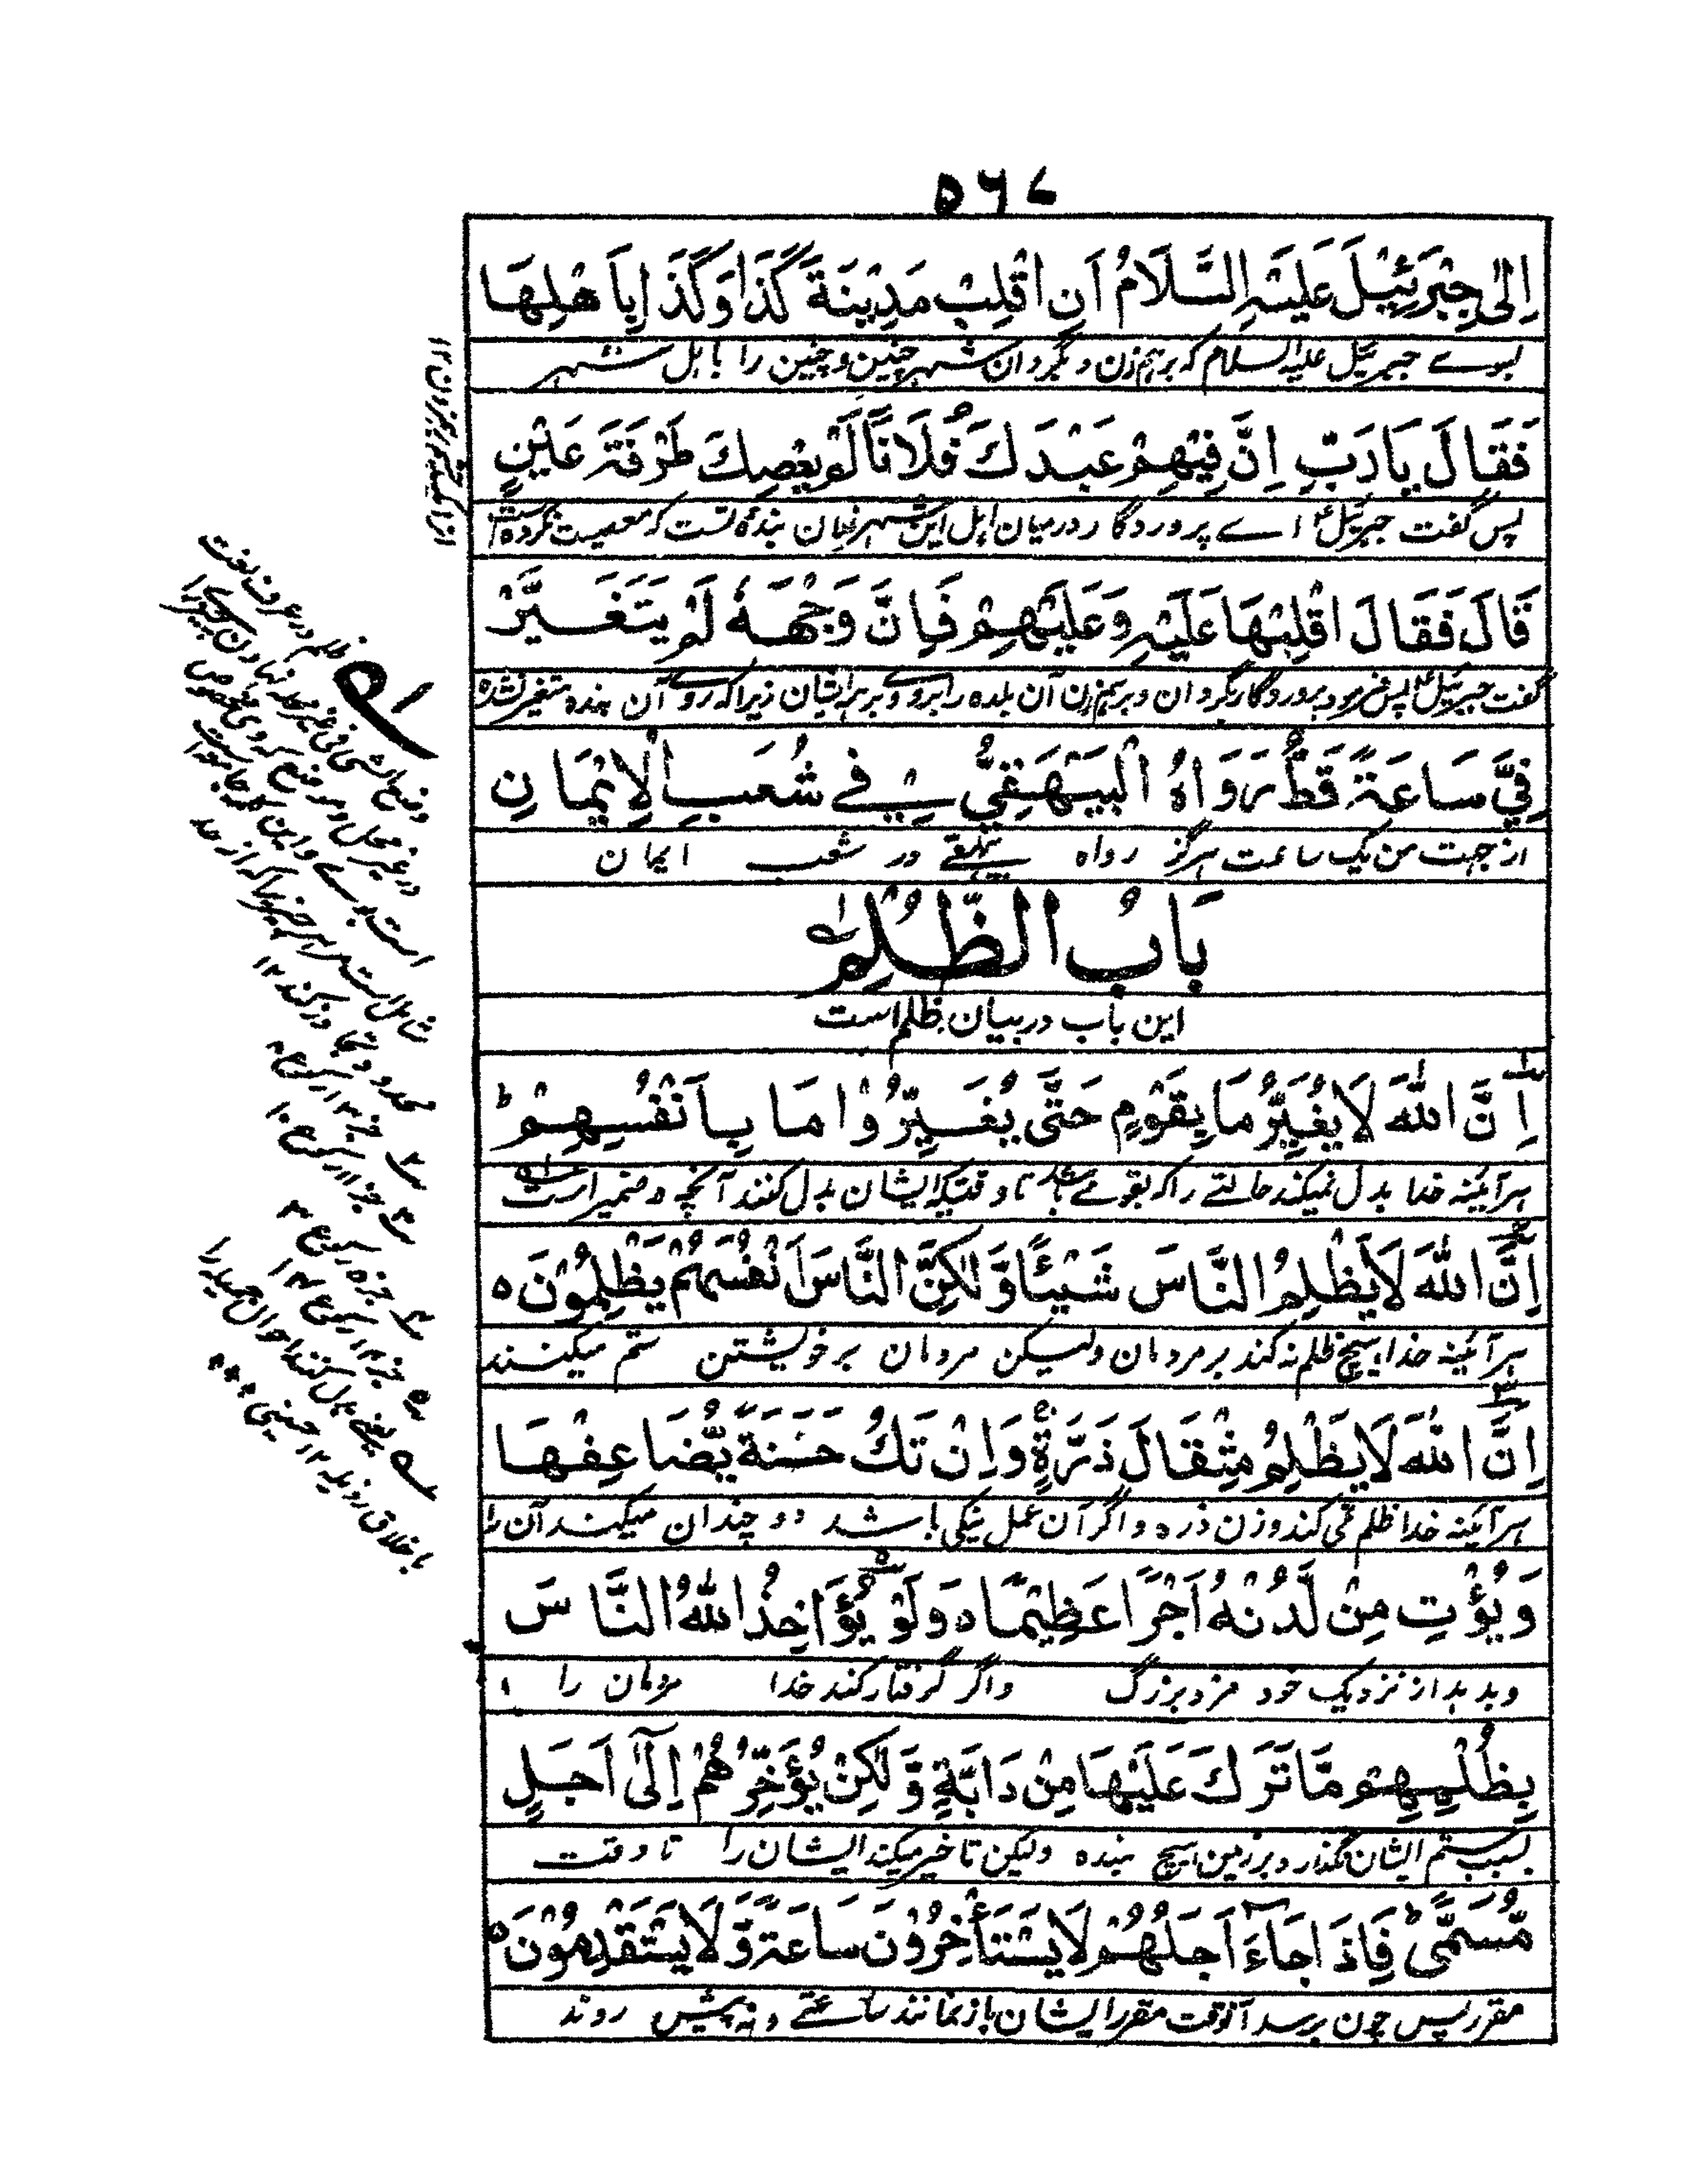 ۵۶۷
اِلٰى جِبْرَئِيْلَ عَلَيْهِ السَّلَامُ اَنِ اقْلِبْ مَدِيْنَةَ كَذَا وَكَذَا بِاَهْلِهَا
بسوے جبرئیل علیہ السلام کہ برہم زن و بگردان شہر چنین و چنین را با اہل شہر
فَقَالَ يَارَبِّ اِنَّ فِيْهِمْ عَبْدَكَ فُلَانًا لَمْ يَعْصِكَ طَرْفَةَ عَيْنٍ
پس گفت جبرئیل اے پروردگار درمیان اہل این شہر فلان بندۂ تست کہ معصیت نکردہ است
قَالَ فَقَالَ اقْلِبْهَا عَلَيْهِ وَعَلَيْهِمْ فَاِنَّ وَجْهَهٗ لَمْ يَتَغَيَّرْ
گفت جبرئیل پس فرمود پروردگار بگردان و برہم زن آن بلدہ را بروے و بر ایشان زیرا کہ روے آن بندہ متغیر نشدہ
فِيَّ سَاعَةً قَطُّ رَوَاهُ الْبَيْهَقِيُّ فِي شُعَبِ الْاِيْمَانِ
از جہت من یک ساعت ہرگز رواہ بیہقے در شعب ایمان
بَابُ الظُّلْمِ
این باب در بیان ظلم است
اِنَّ اللهَ لَا يُغَيِّرُ مَا بِقَوْمٍ حَتّٰى يُغَيِّرُوْا مَا بِاَنْفُسِهِمْ ط
ہر آئینہ خدا بدل نمیکند حالتے را کہ بقومے باشد تا وقتیکہ ایشان بدل کنند آنچہ در ضمیر ایشان است
اِنَّ اللهَ لَا يَظْلِمُ النَّاسَ شَيْئًا وَّلٰكِنَّ النَّاسَ اَنْفُسَهُمْ يَظْلِمُوْنَ ہ
ہر آئینہ خدا ہیچ ظلم نہ کند بر مردمان ولیکن مردمان بر خویشتن ستم میکنند
اِنَّ اللهَ لَا يَظْلِمُ مِثْقَالَ ذَرَّةٍ وَاِنْ تَكُ حَسَنَةً يُّضَاعِفْهَا
ہر آئینہ خدا ظلم نمی کند وزن ذرہ و اگر آن عمل نیکی باشد دو چندان میکند آن را
وَيُؤْتِ مِنْ لَّدُنْهُ اَجْرًا عَظِيْمًا ہ وَلَوْ يُؤَاخِذُ اللهُ النَّاسَ
و بدہد از نزدیک خود مزد بزرگ و اگر گرفتار کند خدا مردمان را
بِظُلْمِهِمْ مَّا تَرَكَ عَلَيْهَا مِنْ دَابَّةٍ وَّلٰكِنْ يُؤَخِّرُهُمْ اِلٰٓى اَجَلٍ
بسبب ستم ایشان نگذارد بر زمین ہیچ جنبندہ ولیکن تاخیر میکند ایشان را تا وقت
مُّسَمًّى فَاِذَا جَآءَ اَجَلُهُمْ لَا يَسْتَأْخِرُوْنَ سَاعَةً وَّلَا يَسْتَقْدِمُوْنَ ہ
مقرر پس چون برسد آنوقت مقرر ایشان باز نمانند ساعتے و نہ پیش روند
ظلم در عرف لغت
وضع الشی فی غیر محلہ
شامل است ہر چیز را کہ از حد
جز ۱۳ رکوع ۸
جز ۱۱ رکوع ۱۰
جز ۵ رکوع ۳
جز ۱۴ رکوع ۱۳
یعنی بدل کنند احوال جمیلہ را
باخلاق رذیلہ ۱۲ حسینی